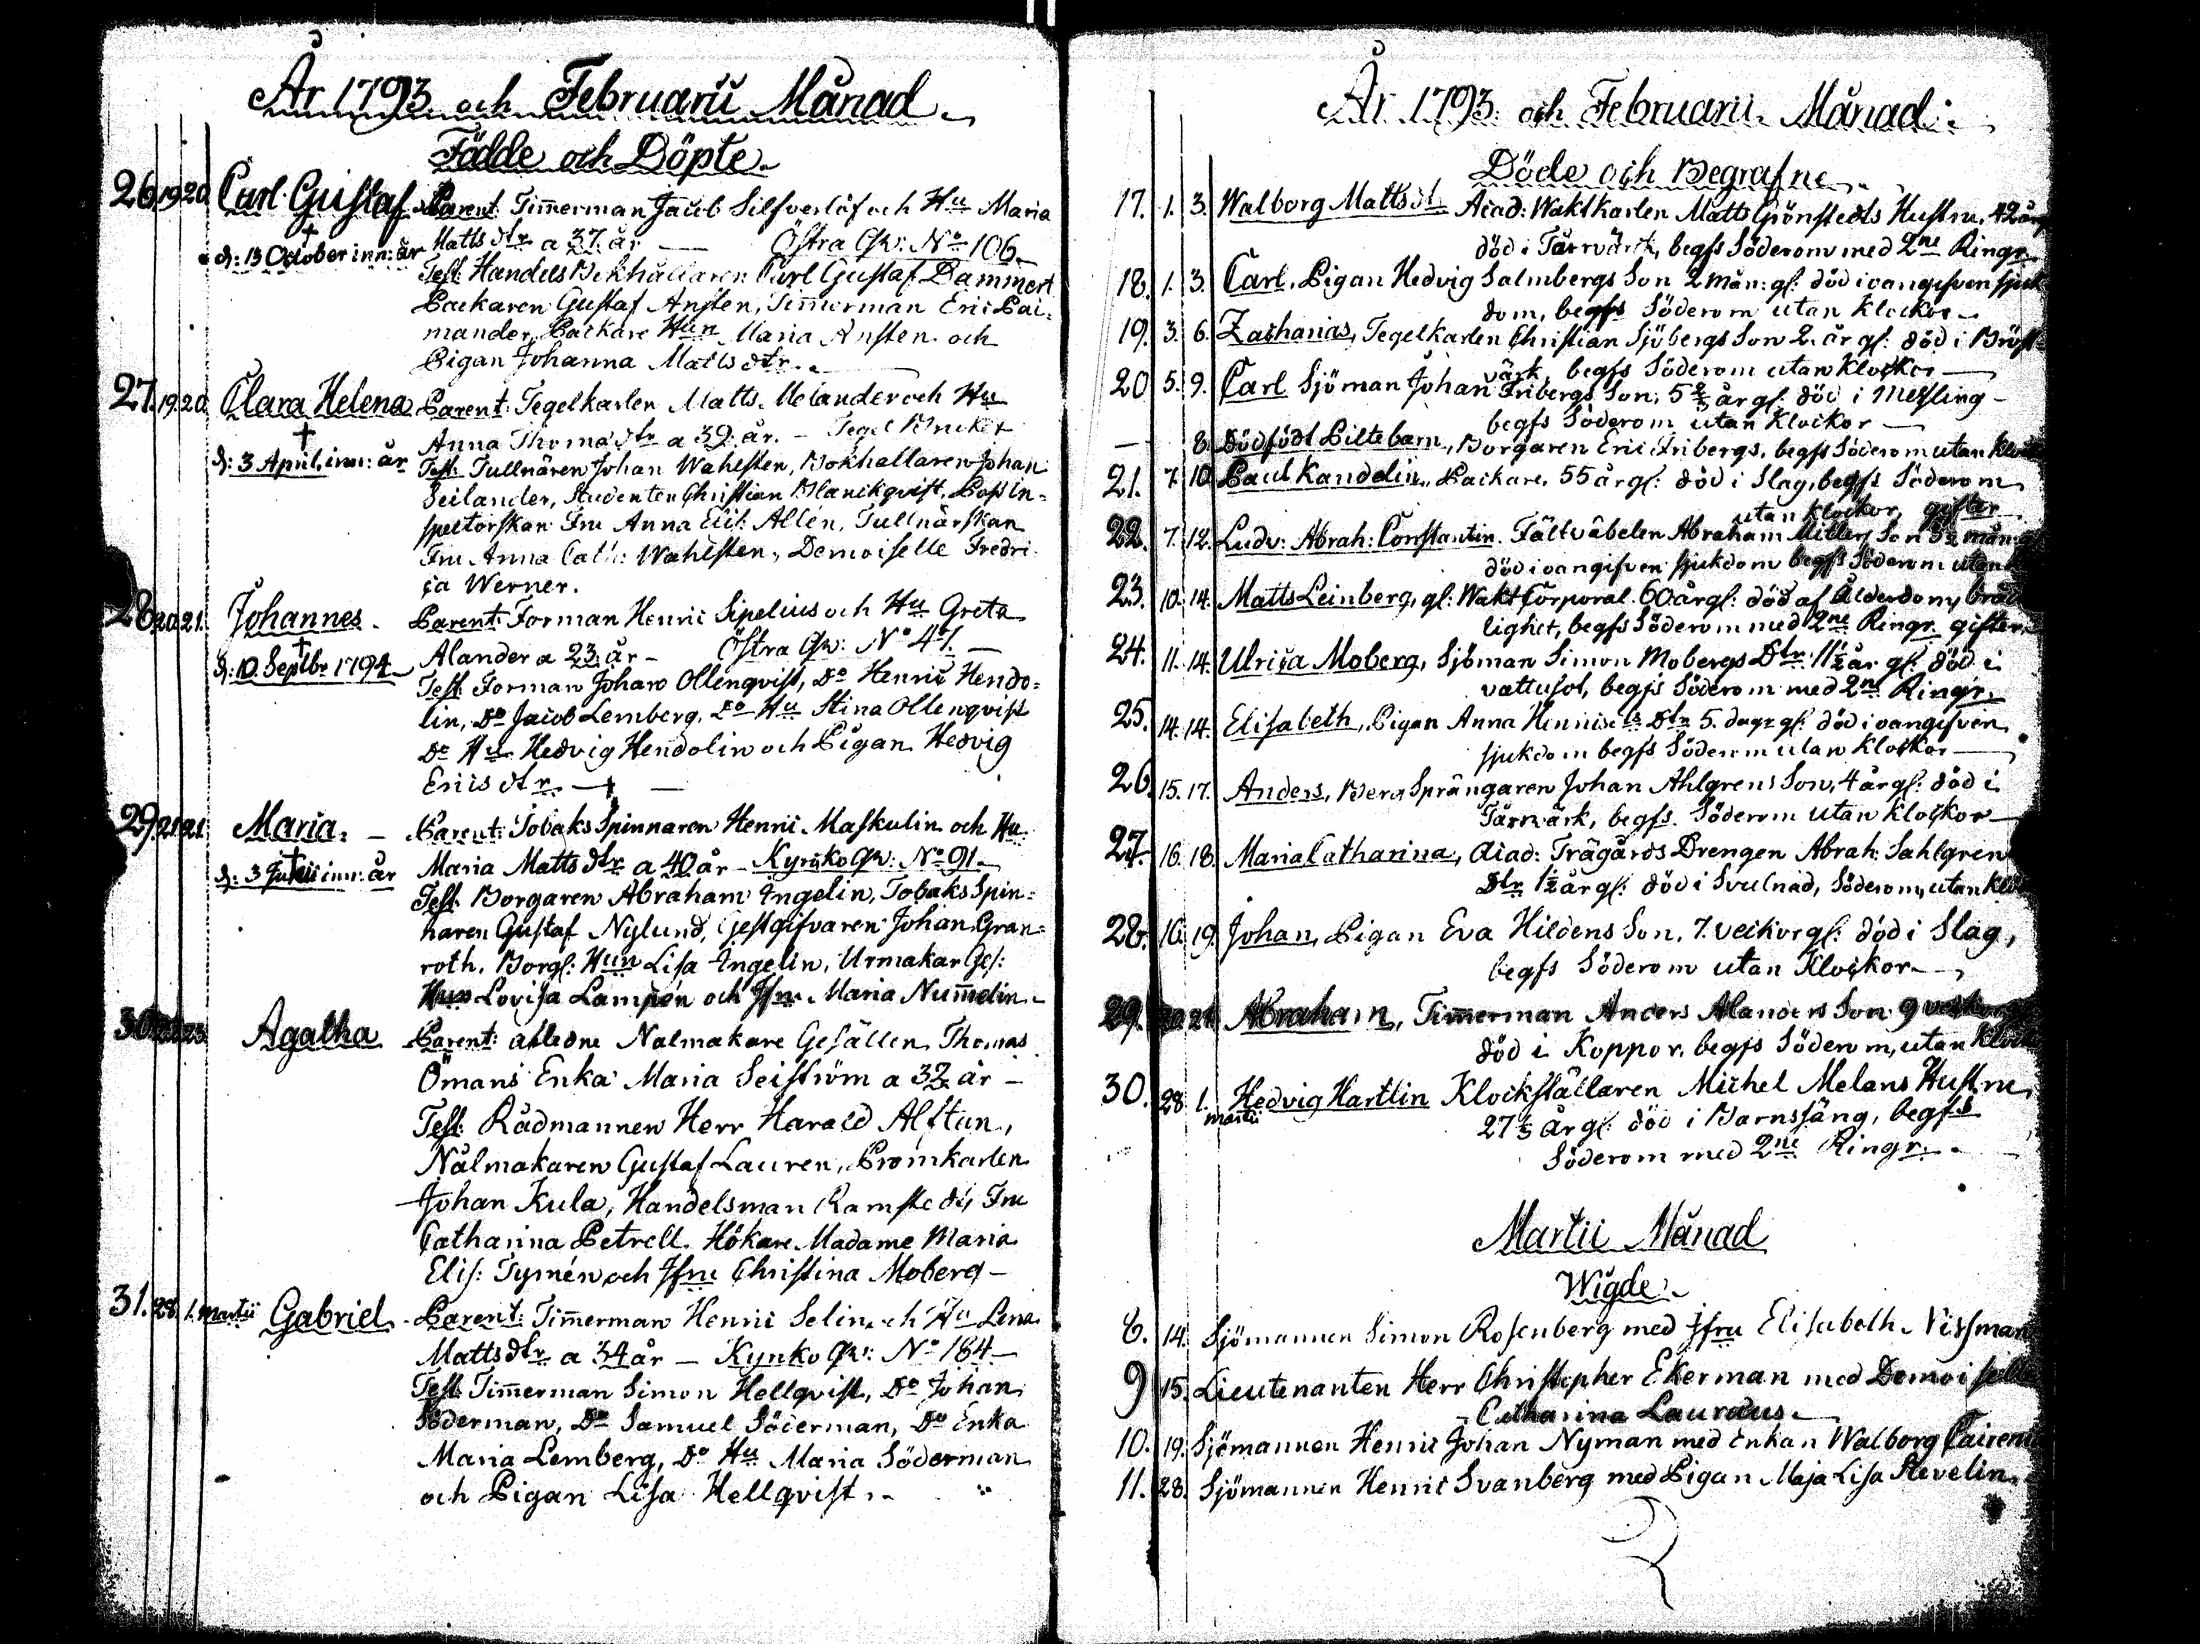 År 1793 och Februarii Månad
Födde och Döpte
26. 19. 20. Carl Gustaf Parent: Tim̄erman Jacob Silfverlöf och Hu Maria
Matts dtr a 37. år — Östra Qw: No 106
† d: 13 October inn: år
Test: Handels Bokhållaren Carl Gustaf Dammert
Packaren Gustaf Ansten, Tim̄erman Eric Pai=
mander, Packare Hun Maria Ansten och
Pigan Johanna Matts dtr
27. 19. 20. Clara Helena Parent: Tegelkarlen Matts Melander och Hu
Anna Thomas dtr a 39 år. — Tegel Bruket
† d: 3 April. inn: år Test: Tullnären Johan Wahlsten, Bokhållaren Johan
Seilander, Studenten Christian Blanckqvist, Post in=
spectorskan Fru Anna Elis: Allén, Tullnärskan
Fru Anna Cath: Wahlsten, Demoiselle Fredri
ca Werner.
28. 20. 21. Johannes. Parent: Forman Henric Sipelius och Hu Greta
Alander a 23 år — Östra Qw: No 47. —
† d: 10. Septbr 1794 Test: Forman Johan Ollenqvist, Do Henric Hendo=
lin, Do Jacob Lemberg, Do Hu Stina Ollenqvist
Do Hu Hedvig Hendolin och Pigan Hedvig
Erics dtr —
29. 21. 21. Maria. — Parent: Tobaks Spinnaren Henric Maskulin och Hu
Maria Matts dtr a 40 år — Kyrcko Qw: No 91 —
† d: 3 inn: år
Test: Borgaren Abraham Ingelin, Tobaks Spin=
naren Gustaf Nylund, Gestgifvaren Johan Gran=
roth, Borgl: Hun Lisa Ingelin, Urmakar Ges:
Hun Lovisa Lampén och Jfru Maria Num̄elin
30. 23. Agatha Parent: afledne Nålmakare Gesällen Thomas
Ömans Enka Maria Seiström a 32 år —
Test: Rådmannen Herr Harald Alftan,
Nålmakaren Gustaf Lauren, Promkarlen
Johan Kula, Handelsman Ramstedt, Fru
Catharina Petrell. Hökare Madame Maria
Elis: Tymén och Jfru Christina Moberg —
31. 28. 1. Martii Gabriel. Parent: Tim̄erman Henric Selin och Hu Lena
Matts dtr a 34 år — Kyrcko Qw: No 184 —
Test: Tim̄erman Simon Hellqvist, Do Johan
Söderman, Do Samuel Söderman, Do Enka
Maria Lemberg, Do Hu Maria Söderman
och Pigan Lisa Hellqvist.
År 1793. och Februarii Månad:
Döde och Begrafne
17. 1. 3. Walborg Matts dt. Acad: Waktkarlen Matts Grönstedts Hustru, 42 år
död i Tärrvärk, begfs Söderom med 2ne Ringr
18. 1. 3. Carl. Pigan Hedvig Salmbergs Son 2 mån: gl: död i oangifven sjuk
dom, begfs Söderom utan klockor —
19. 3. 6. Zacharias, Tegelkarlen Christian Sjöbergs Son 2. år gl: död i Bröst
värk, begfs Söderom utan klockor —
20 5. 9. Carl Sjöman Johan Fribergs Son, 5 2/3 år gl: död i Messling —
begfs Söderom utan klockor —
— 8. Dödfödt Piltebarn, Borgaren Eric Fribergs, begfs Söderom utan klock
21. 7. 10. Paul Kandelin, Packare. 55 år gl: död i Slag, begfs Söderom
utan klockor, gifter
22. 7. 12. Ludv: Abrah: Constantin. Fältväbelen Abraham Millers Son 3½ mån:
död i oangifven sjukdom begfs Söderom utan
23. 10. 14. Matts Leinberg, gl: Wakt Corporal. 60 år gl: död af Ålderdoms bräck
lighet, begfs Söderom med 2ne Ringr. gifter
24. 11. 14. Ulrica Moberg, Sjöman Simon Mobergs Dtr. 11½ år gl: död i
vattusot, begfs Söderom med 2ne Ringr.
25. 14. 14. Elisabeth, Pigan Anna Henrics Dtr 5. dagr gl: död i oangifven
sjukdom begfs Söderom utan klockor —
26. 15. 17. Anders, Berg Sprängaren Johan Ahlgrens Son, 4 år gl: död i
Tärrvärk, begfs. Söderom utan klockor —
27. 16. 18. Maria Catharina, Acad: Trägårds Drengen Abrah: Sahlgren
Dtr 1½ år gl: död i Svulnad, Söderom, utan klo
28. 16. 19. Johan, Pigan Eva Hildens Son, 7. veckor gl: död i Slag,
begfs Söderom utan Klockor —
29. 20. 21. Abraham, Tim̄erman Anders Alanders Son 9 veckor
död i Koppor. begfs Söderom, utan Klock
30. 28. 1. Martii Hedvig Hartlin Klockställaren Michel Melans Hustru
27⅓ år gl: död i Barnssäng, begfs
Söderom med 2ne Ringr.
Martii Månad
Wigde
8. 14. Sjömannen Simon Rosenberg med Jfru Elisabeth Nissman
9 15. Lieutenanten Herr Christopher Ekerman med Demoiselle
Catharina Lauræus
10. 19. Sjömannen Henric Johan Nyman med Enkan Walborg
11. 28. Sjömannen Henric Svanberg med Pigan Maja Lisa Stevelin.